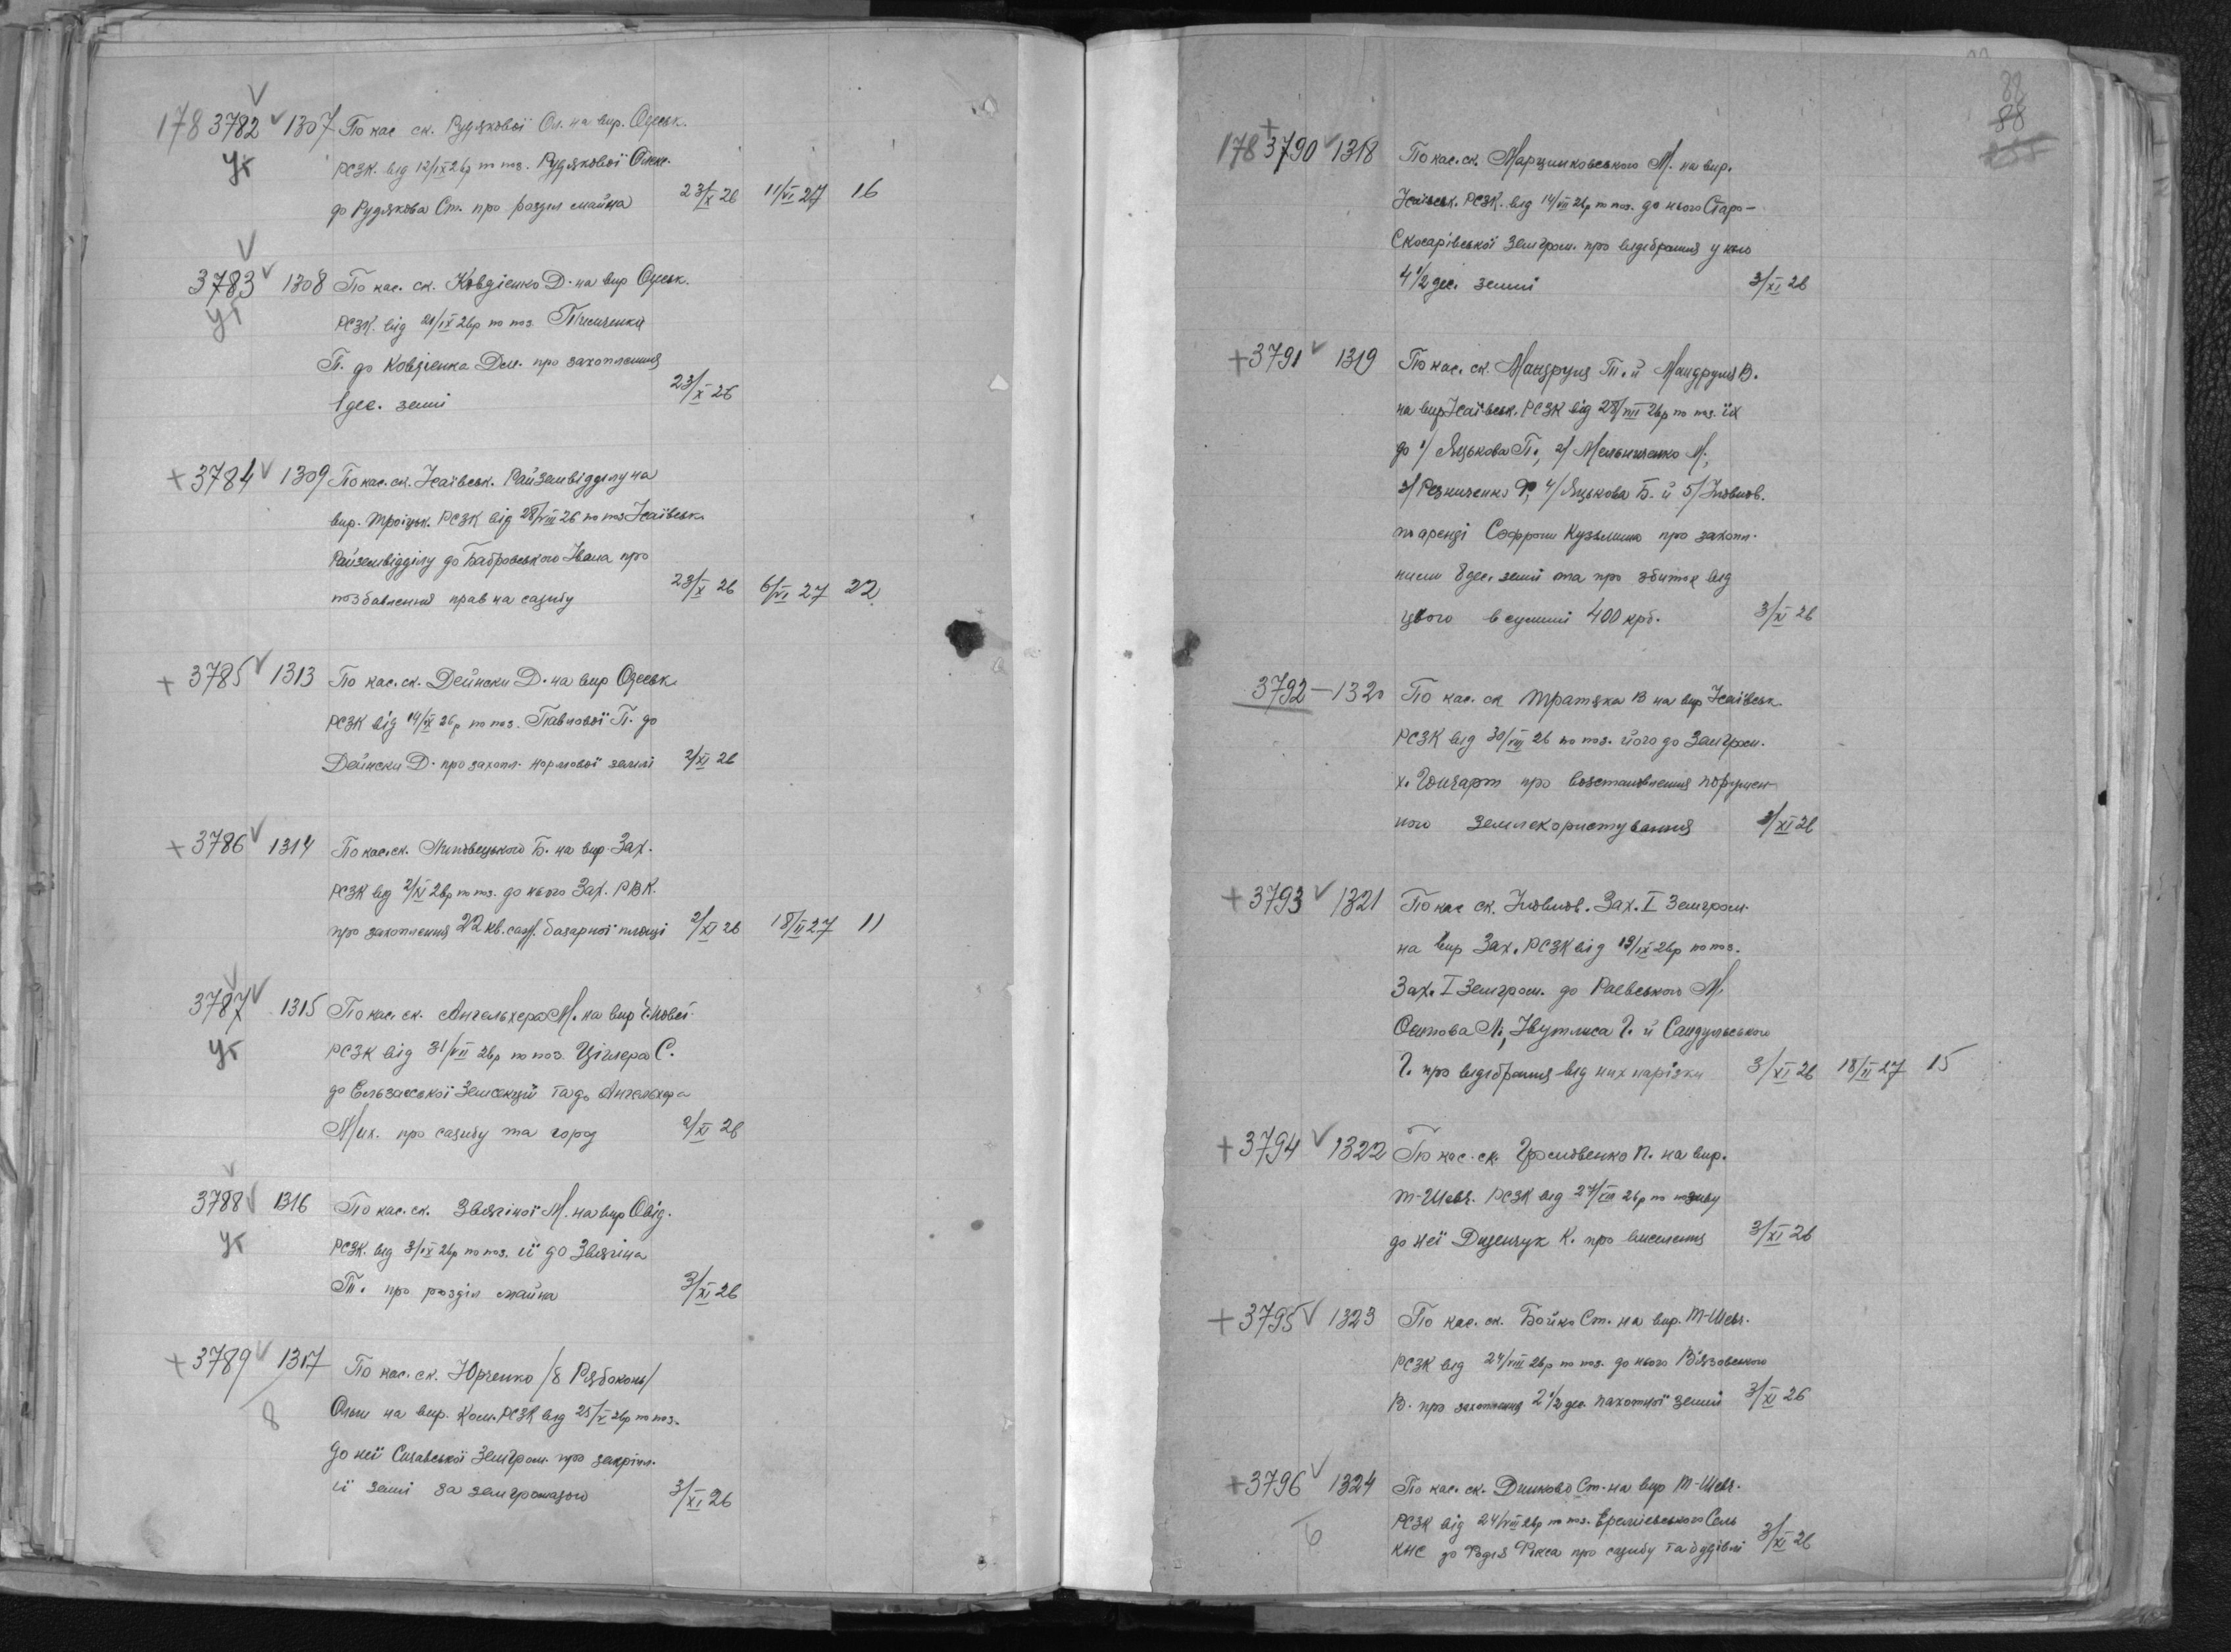 178 3782 1307 По кас ск. Рудякової Ол. на вир. Одеськ.
РСЗК. від 12/IX 26р по поз. Рудякової Олек.
до Рудякова Ст. про розділ майна 23/X 26 11/VI 27 16
3783 1308 По кас. ск. Ковдієнко Д. на вир Одеськ.
РСЗК. від 21/IX 26р по поз.
П. до Ковдієнка Дем. про захоплення
1 дес. землі 23/X 26
+ 3784 1309 По кас. ск. Ісаївськ. Райземвідділу на
вир. Троїцьк. РСЗК від 28/VIII 26 по поз Ісаївськ.
Райземвідділу до Бабровського Івана про
позбавлення прав на садибу 23/X 26 6/VI 27 22
+ 3785 1313 По кас. ск. Дейнеки Д. на вир Одеськ
РСЗК від 14/IX 26р по поз. Павлової П. до
Дейнеки Д. про захопл. нормової землі 2/XI 26
+ 3786 1314 По кас. ск. Липовецького Б. на вир. Зах.
РСЗК від 2/IX 26р по поз. до нього Зах. РВК.
про захоплення 22 кв. саж. базарної площі 2/XI 26 18/II 27 11
3787 1315 По кас. ск. Ангельхера М. на вир
РСЗК від 31/VII 26р по поз. Ціглера С.
до Ельзаської Земсекції та до Ангельхера
Мих. про садибу та город 2/XI 26
3788 1316 По кас. ск. Звягіної М. на вир Овід.
РСЗК. від 3/IX 26р по поз. її до Звягіна
П. про розділ майна 3/XI 26
+ 3789 1317 По кас. ск. Юрченко /б Рябоконь/
8 Ольги на вир. Ком. РСЗК від 25/V 26р по поз.
до неї Земгром. про закріпл.
її землі за земгромадою 3/XI 26
88
178 + 3790 1318 По кас. ск. Марцинковського М. на вир.
Ісаївськ. РСЗК. від 14/VII 26р по поз. до нього Старо-
Скосарівської Земгром. про відібрання у нього
4 1/2 дес. землі 3/XI 26
+ 3791 1319 По кас. ск. Мандруля П. й Мандруля В.
на вир Ісаївськ. РСЗК від 28/VIII 26р по поз. їх
до 1/ Яцькова П., 2/ Мельниченко М.,
3/ Резниченко Ф, 4/ Яцькова Б. й 5/
по аренді Софрона Кузьмина про захопл.
ними 8 дес. землі та про збиток від
цього в суммі 400 крб. 3/XI 26
3792 - 1320 По кас. ск Тратяка В на вир Ісаївськ.
РСЗК від 30/VII 26 по поз. його до Земгром.
х. Гончарт про возстановлення порушен
ного землекористування 3/XI 26
+ 3793 1321 По кас ск. Зах. I Земгром.
на вир Зах. РСЗК від 19/IX 26р по поз.
Зах. I Земгром. до Раевського М.
Г. й Сандульського
Г. про відібрання від них нарізки 3/XI 26 18/II 27 15
+ 3794 1322 По кас. ск. П. на вир.
Т-Шевч. РСЗК від 27/VII 26р по позиву
до неї К. про виселення 3/XI 26
+ 3795 1323 По кас. ск. Бойко Ст. на вир. Т-Шевч.
РСЗК від 24/VIII 26р по поз. до нього Вязовського
В. про захоплення 2 1/2 дес. пахотної землі 3/XI 26
+ 3796 1324 По кас. ск. Димково Ст. на вир Т-Шевч.
6 РСЗК від 24/VII 26р по поз. Еремієвського Сель
КНС до про садибу та будівлі 3/XI 26